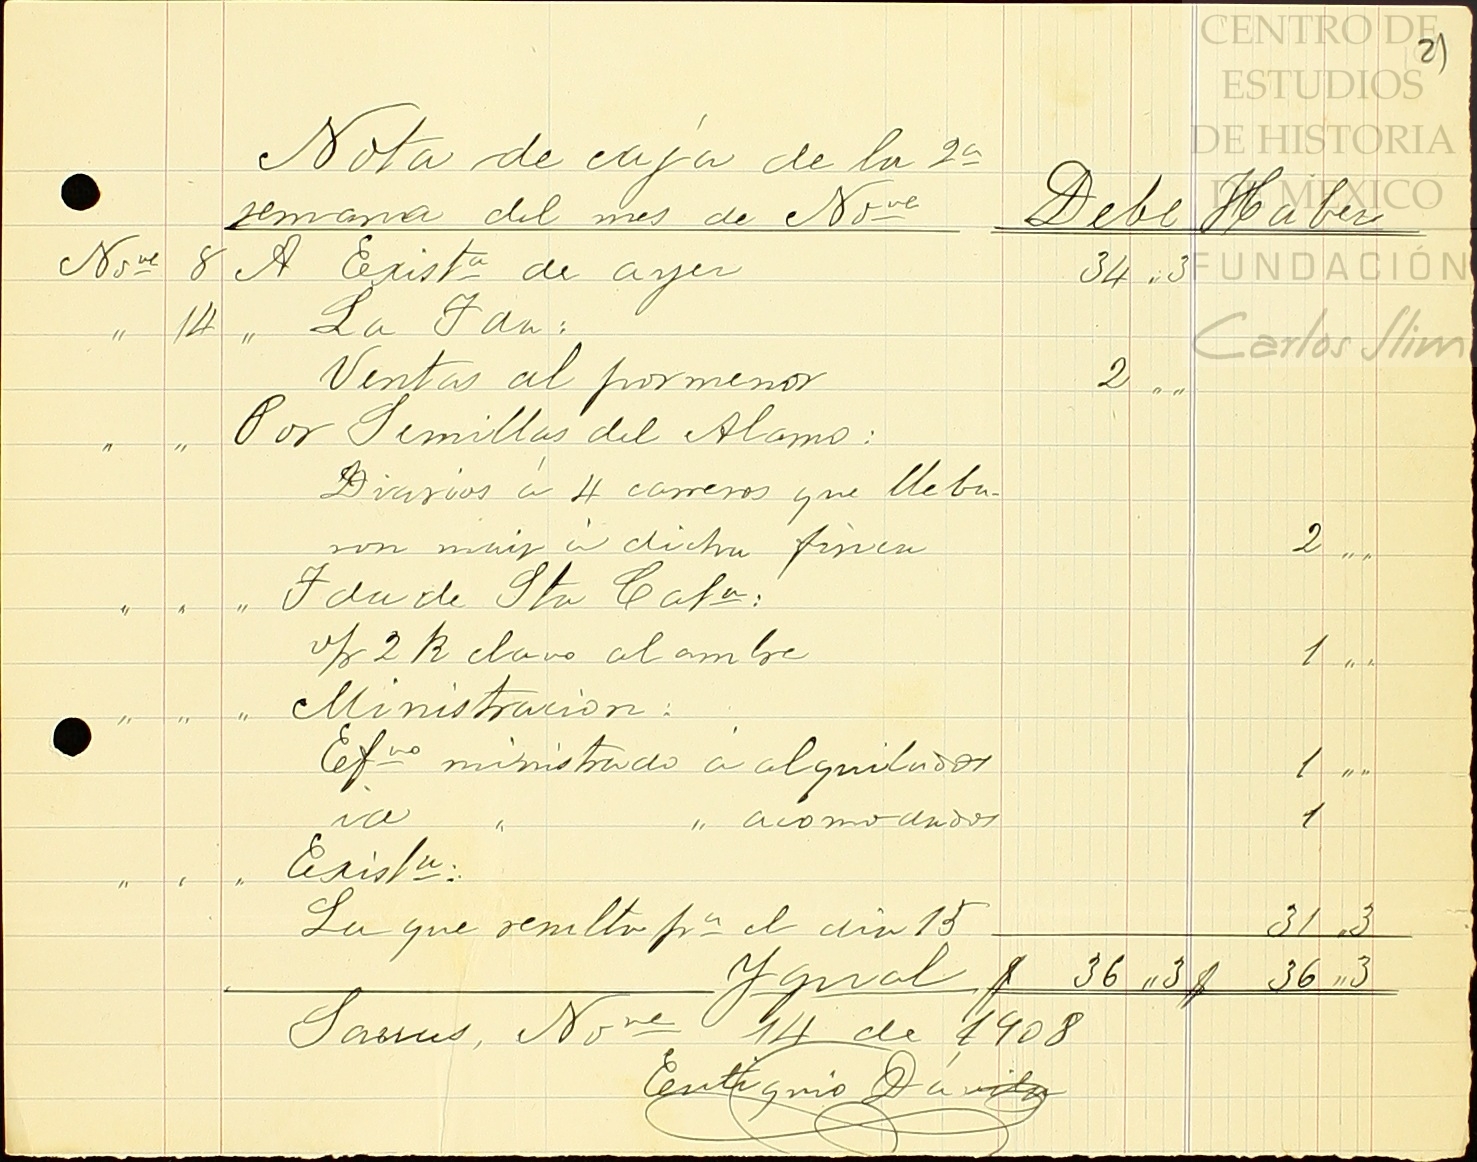 2)
CENTRO DE
ESTUDIOS
DE HISTORIA
DE MÉXICO
FUNDACIÓN
Carlos Slim
Nota de caja de la 2a
semana del mes de Nove Debe Haber
Nove 8 A Exista de ayer 34 ,, 3
" 14 " La Fda:
Ventas al pormenor 2 ,, ,,
" " Por Semillas del Alamo:
Diarios á 4 carreros que lleba-
ron maiz á dicha finca 2 ,, ,,
" " " Fda de Sta Cata:
v/r 2 K clavo alambre 1 ,, ,,
" " " Ministracion:
Efvo ministrado á alquilados 1 ,, ,,
id " " acomodados 1
" " " Exista:
La que resulta pa el dia 15 31 ,, 3
Ygual $ 36 ,, 3 $ 36 ,, 3
Nove 14 de 1908
Eutiquio Dávila